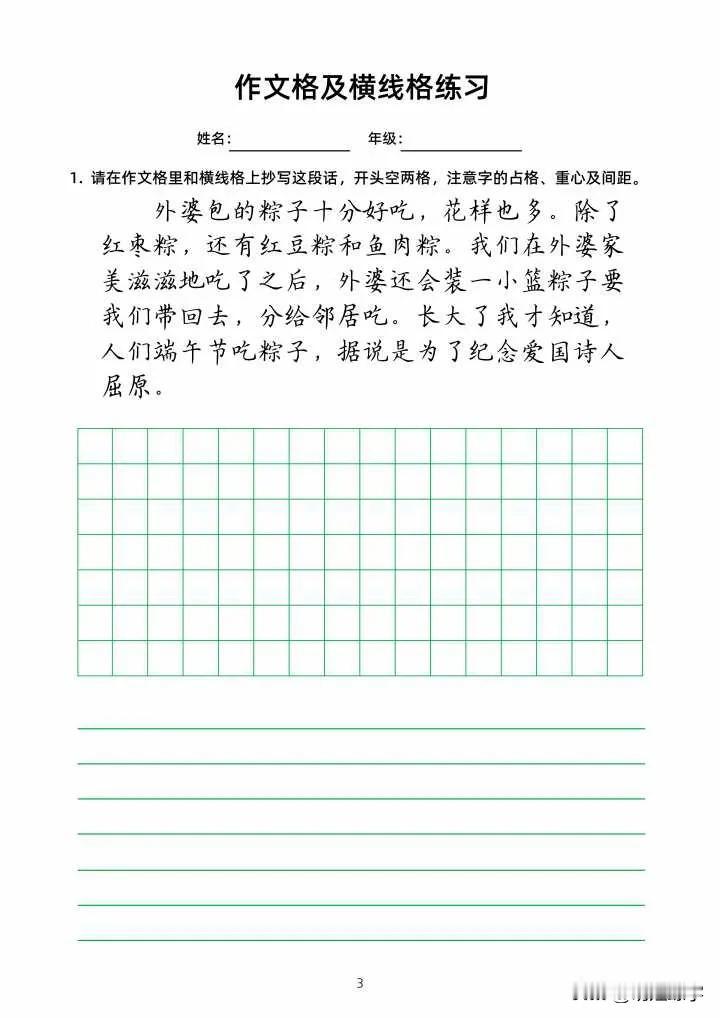 作文格及横线格练习
姓名： 年级：
1. 请在作文格里和横线格上抄写这段话，开头空两格，注意字的占格、重心及间距。
外婆包的粽子十分好吃，花样也多。除了
红枣粽，还有红豆粽和鱼肉粽。我们在外婆家
美滋滋地吃了之后，外婆还会装一小篮粽子要
我们带回去，分给邻居吃。长大了我才知道，
人们端午节吃粽子，据说是为了纪念爱国诗人
屈原。
3